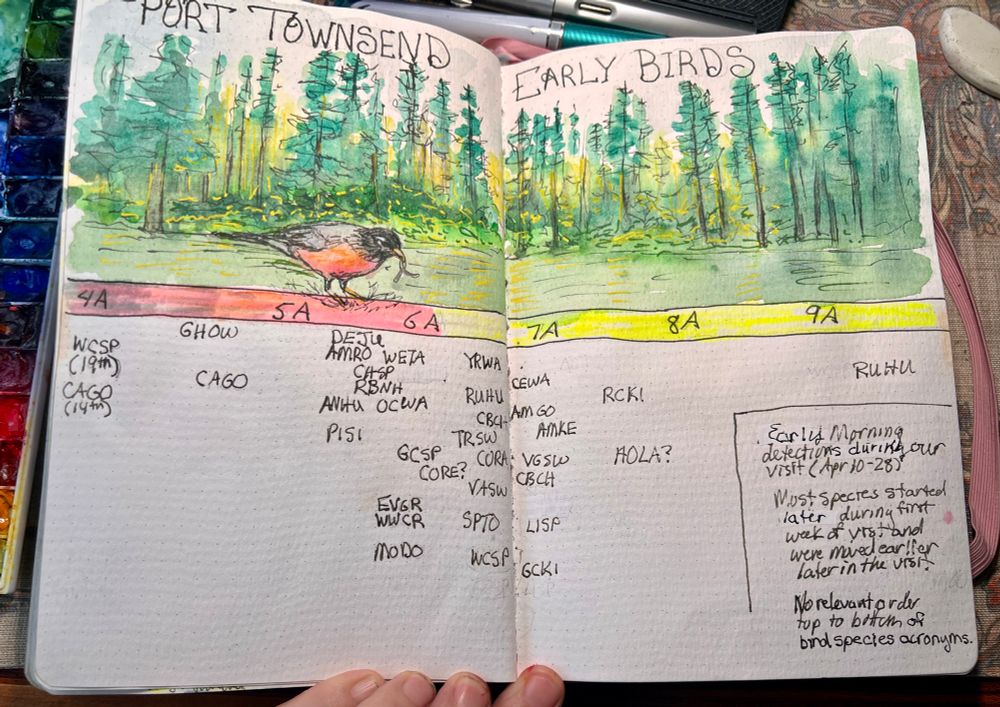 PORT TOWNSEND
EARLY BIRDS
4A 5A 6A 7A 8A 9A
GHOW
WCSP
(19th)
CAGO
CAGO
(14th)
DEJU
AMRO WETA
CHSP
RBNH
ANHU OCWA
PISI
YRWA
RUHU
CBCH
TRSW
GCSP
CORA
CORE?
VASW
EVGR
WWCR
SPTO
MODO
WCSP
CEWA
AMGO
AMKE
VGSW
CBCH
LISP
GCKI
RCKI
HOLA?
RUHU
Early Morning
detections during our
visit (Apr 10-28)
Most species started
later during first
week of visit and
were moved earlier
later in the visit.
No relevant order
top to bottom of
bird species acronyms.